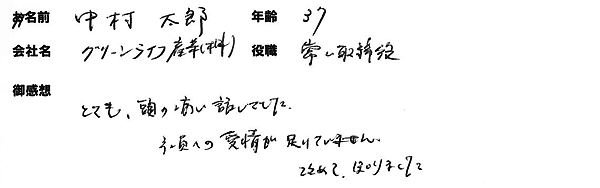 お名前 中村 太郎 年齢 37
会社名 グリーンライフ産業(株) 役職 常ム取締役
御感想
とても、頭の痛い話しでした。
社員への愛情が足りていません。
改めて、